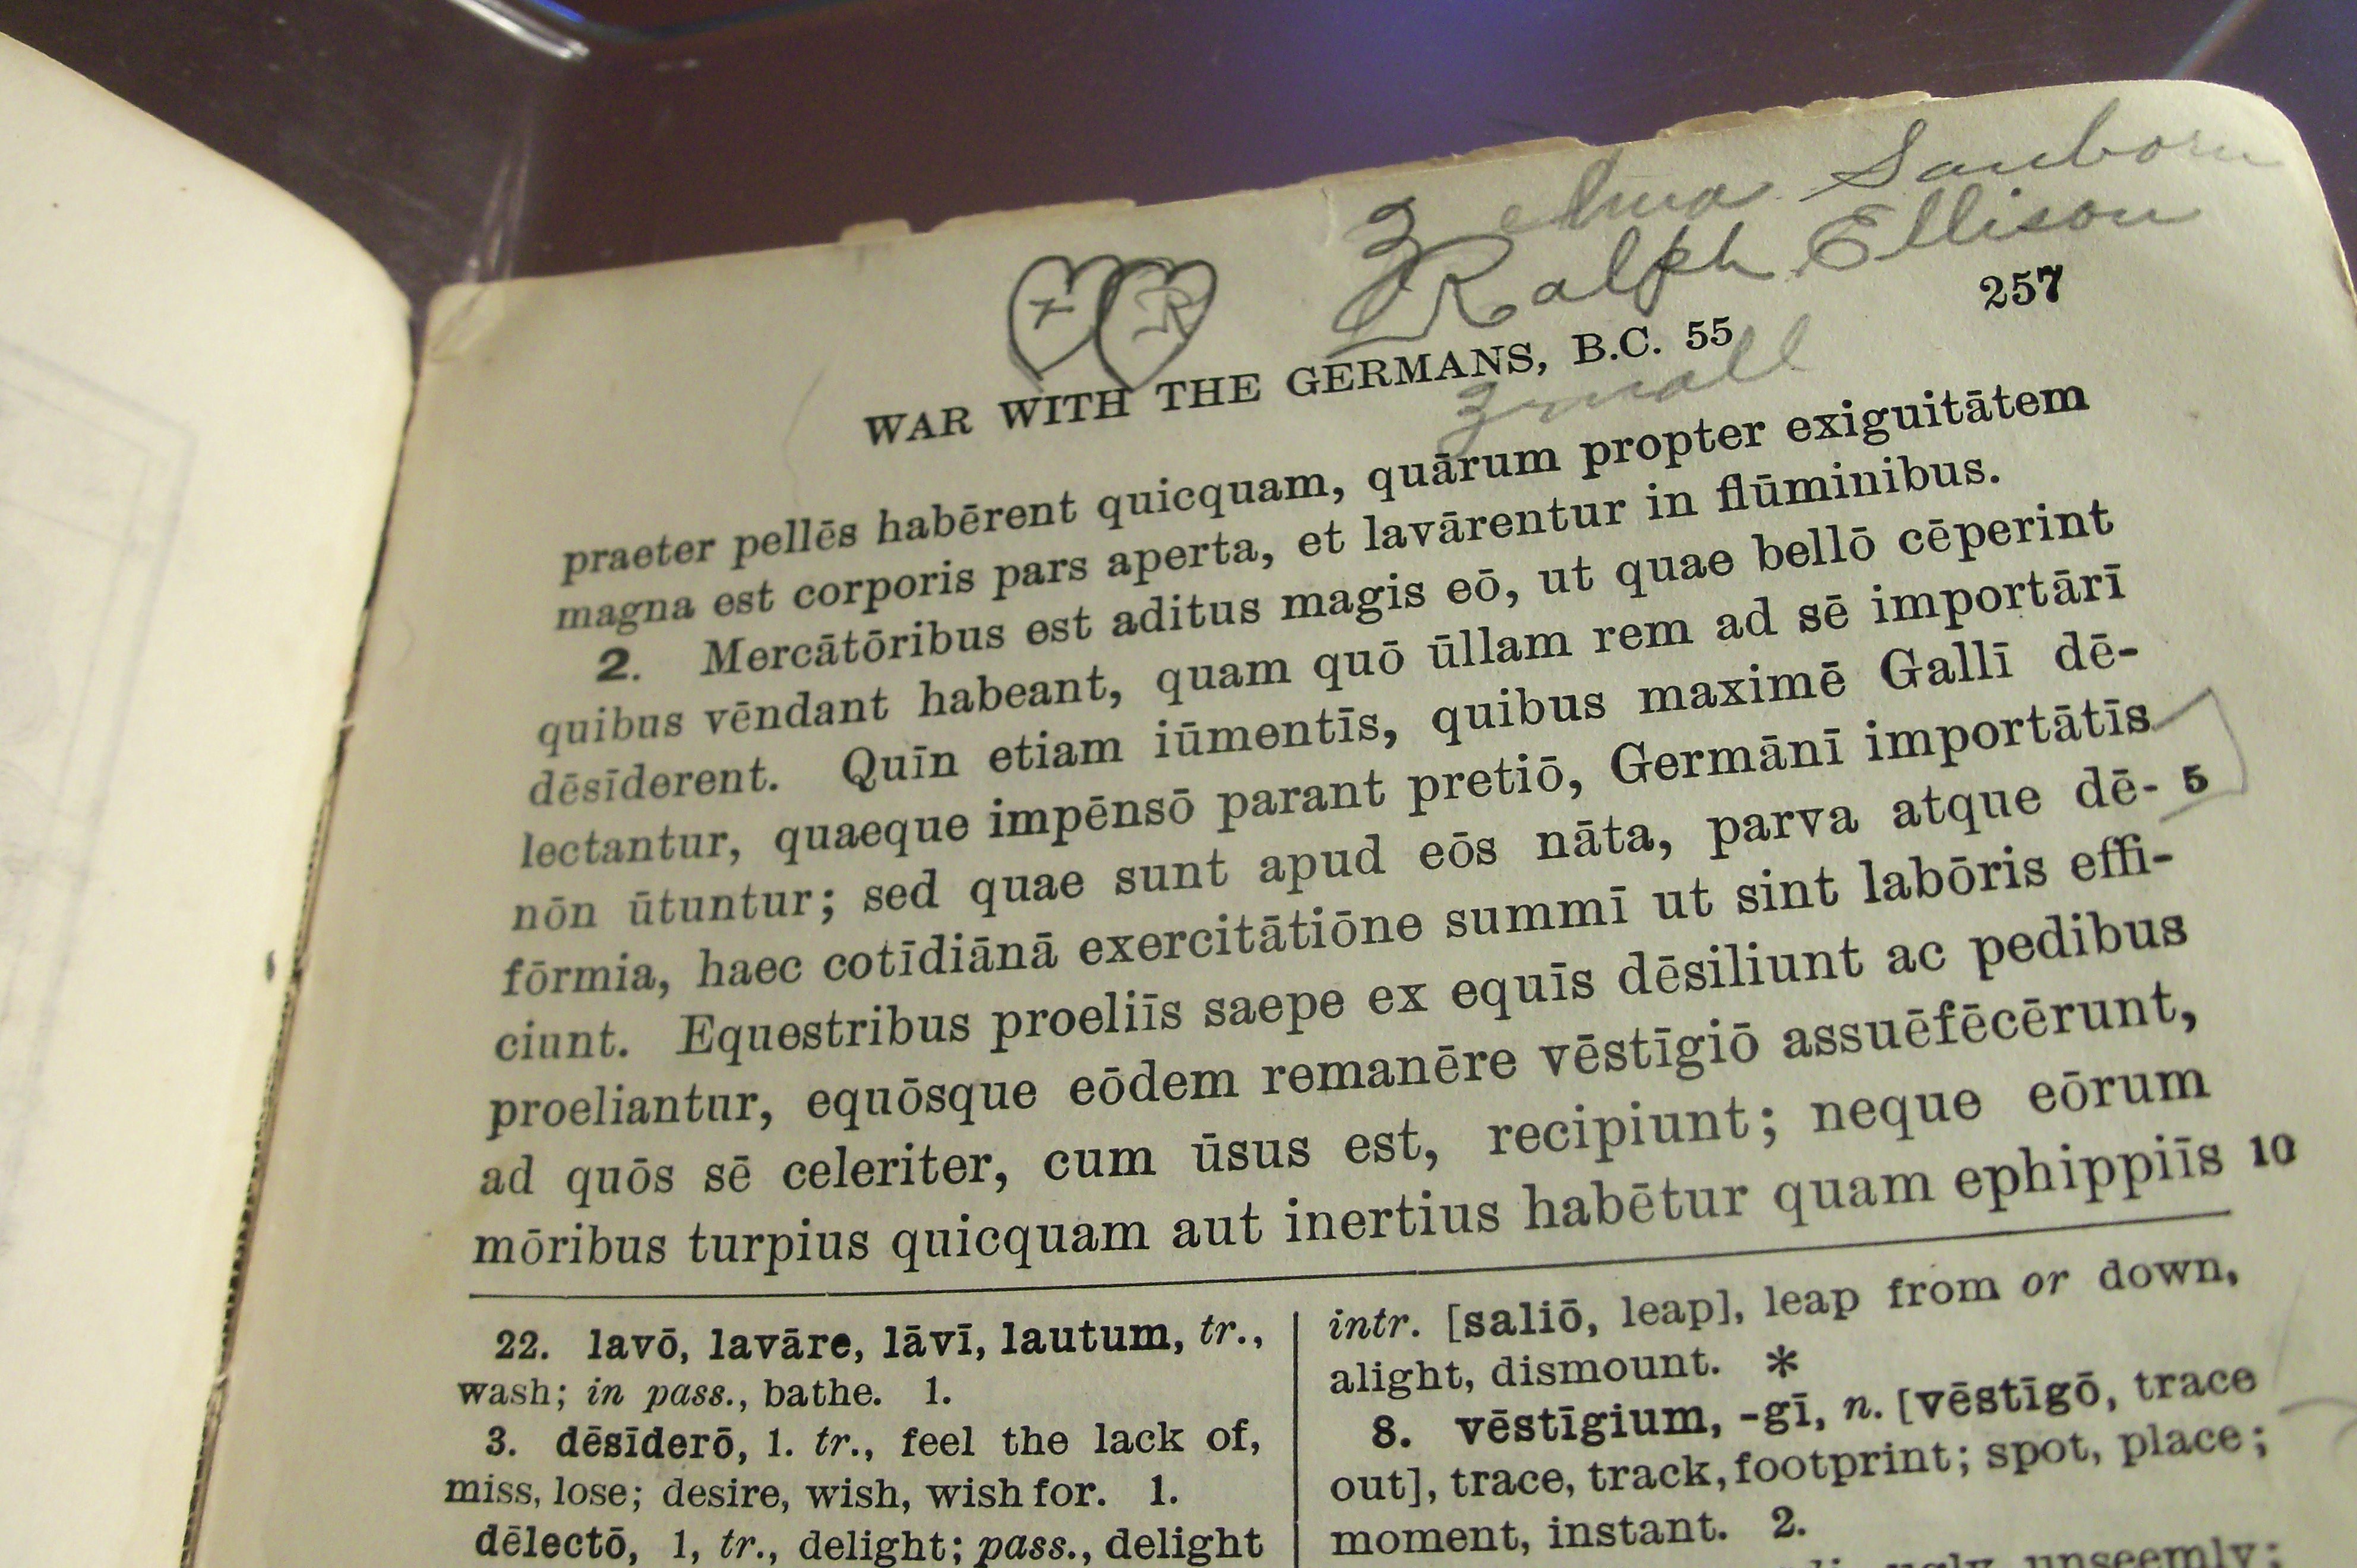 Zelma Sanborn
Ralph Ellison
R
257
WAR WITH THE GERMANS, B.C. 55
praeter pellēs habērent quicquam, quārum propter exiguitātem
magna est corporis pars aperta, et lavārentur in flūminibus.
2. Mercātōribus est aditus magis eō, ut quae bellō cēperint
quibus vēndant habeant, quam quō ūllam rem ad sē importārī
dēsīderent. Quīn etiam iūmentīs, quibus maximē Gallī dē-
lectantur, quaeque impēnsō parant pretiō, Germānī importātīs
nōn ūtuntur; sed quae sunt apud eōs nāta, parva atque dē- 5
fōrmia, haec cotīdiānā exercitātiōne summī ut sint labōris effi-
ciunt. Equestribus proeliīs saepe ex equīs dēsiliunt ac pedibus
proeliantur, equōsque eōdem remanēre vēstīgiō assuēfēcērunt,
ad quōs sē celeriter, cum ūsus est, recipiunt; neque eōrum
mōribus turpius quicquam aut inertius habētur quam ephippiīs 10
22. lavō, lavāre, lāvī, lautum, tr.,
wash; in pass., bathe. 1.
3. dēsīderō, 1. tr., feel the lack of,
miss, lose; desire, wish, wish for. 1.
dēlectō, 1, tr., delight; pass., delight
intr. [saliō, leap], leap from or down,
alight, dismount. *
8. vēstīgium, -gī, n. [vēstīgō, trace
out], trace, track, footprint; spot, place;
moment, instant. 2.
ugly, unseemly;